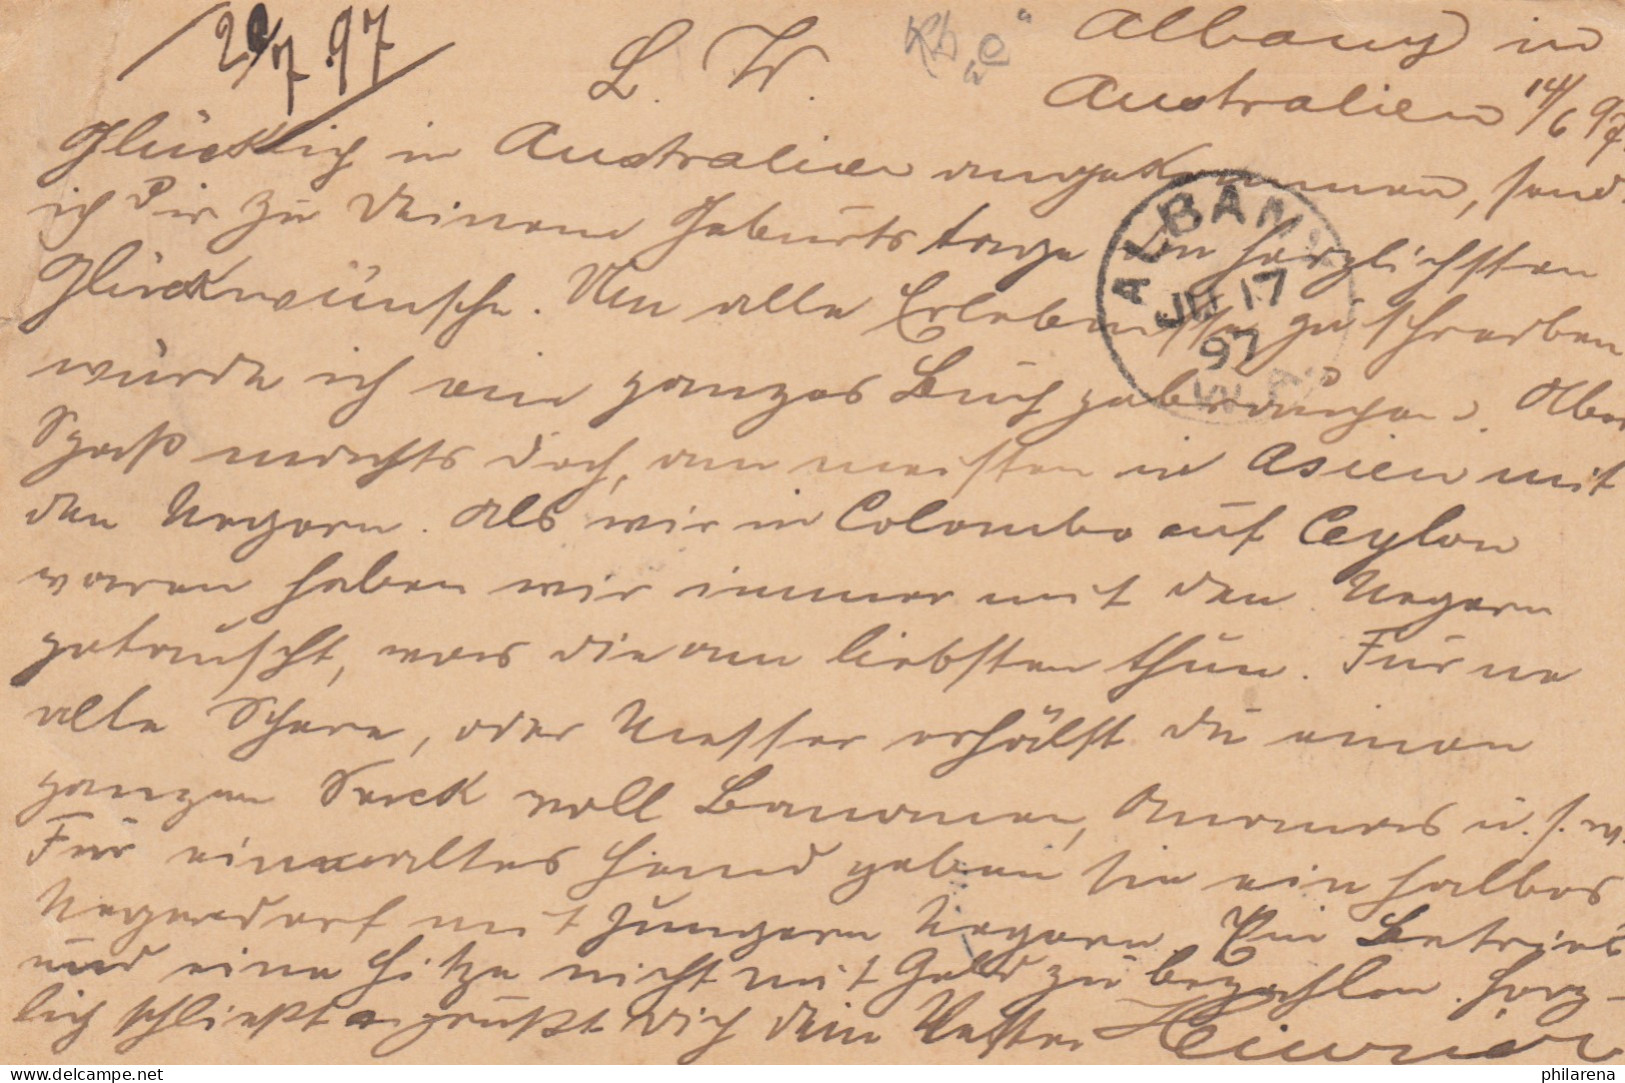 20/7 97
L. W.
Albany in
Australien 14/6 97.
Glücklich in Australien angekommen, send
ich Dir zu Deinem Geburtstage die herzlichsten
Glückwünsche. Um alle Erlebnisse zu schreiben
würde ich ein ganzes Buch gebrauchen. Aber
Spaß machts doch, am meisten in Asien mit
den Negern. Als wir in Colombo auf Ceylon
waren haben wir immer mit den Negern
getauscht, was die am liebsten thun. Für ne
alte Schere, oder Messer erhälst Du einen
ganzen Sack voll Bananen, Ananas u. s. w.
Für ein altes Hemd geben sie ein halbes
Negerdorf mit jungern Negern. Ein Betrieb
und eine Hitze nicht mit Geld zu bezahlen. Herz-
lich schließt u. grüßt Dich Dein Vetter Heinrich
ALBANY
JU 17
97
W.A.
philarena